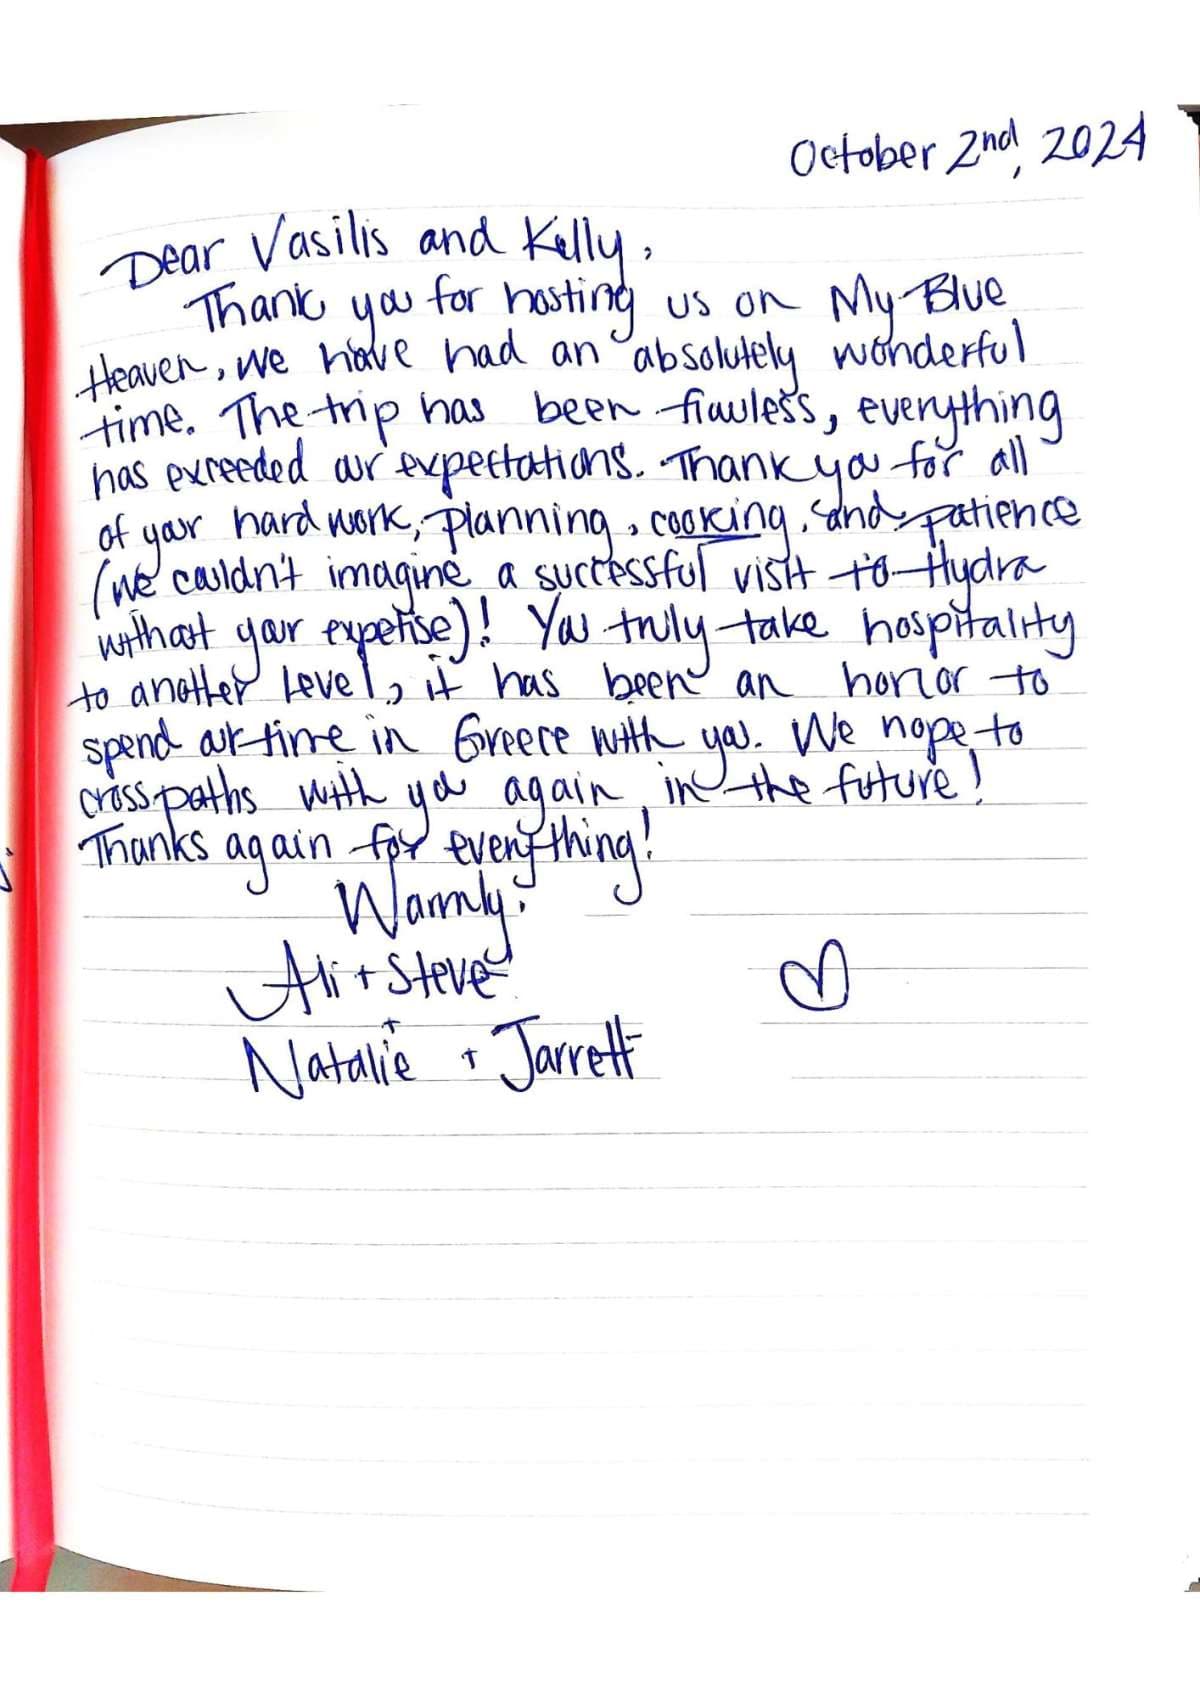 October 2nd, 2024
Dear Vasilis and Kelly,
Thank you for hosting us on My Blue
Heaven, we have had an absolutely wonderful
time. The trip has been flawless, everything
has exceeded our expectations. Thank you for all
of your hard work, planning, cooking, and patience
(we couldn't imagine a successful visit to Hydra
without your expertise)! You truly take hospitality
to another level, it has been an honor to
spend our time in Greece with you. We hope to
cross paths with you again in the future!
Thanks again for everything!
Warmly,
Ali + Steve
+
Natalie + Jarrett